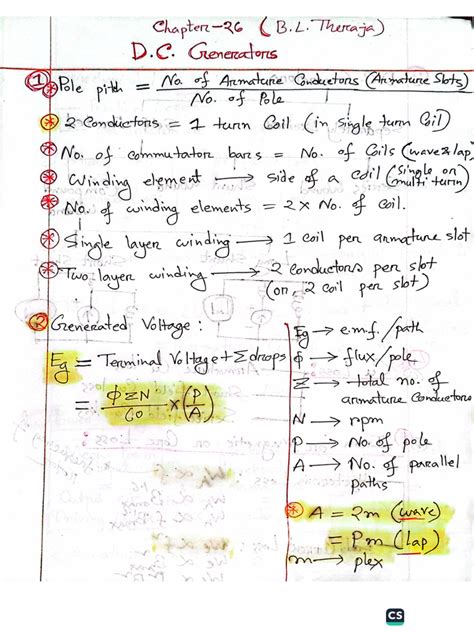 Chapter-26 (B.L. Theraja)
D.C. Generators
① * Pole pitch = No. of Armature Conductors (Armature Slots) / No. of Pole
* 2 Conductors = 1 turn Coil (in single turn Coil)
* No. of commutator bars = No. of Coils (wave & lap)
* Winding element → side of a coil (single or multi turn)
* No. of winding elements = 2 × No. of coil.
* Single layer winding → 1 coil per armature slot
* Two layer winding → 2 conductors per slot
(or, 2 coil per slot)
② Generated Voltage :
Eg = Terminal Voltage + Σ drops
= ϕZN/60 × (P/A)
Eg → e.m.f./path
ϕ → flux/pole
Z → total no. of
armature Conductors
N → rpm
P → No. of pole
A → No. of parallel
paths
* A = 2m (wave)
= Pm (Lap)
m → plex
CS